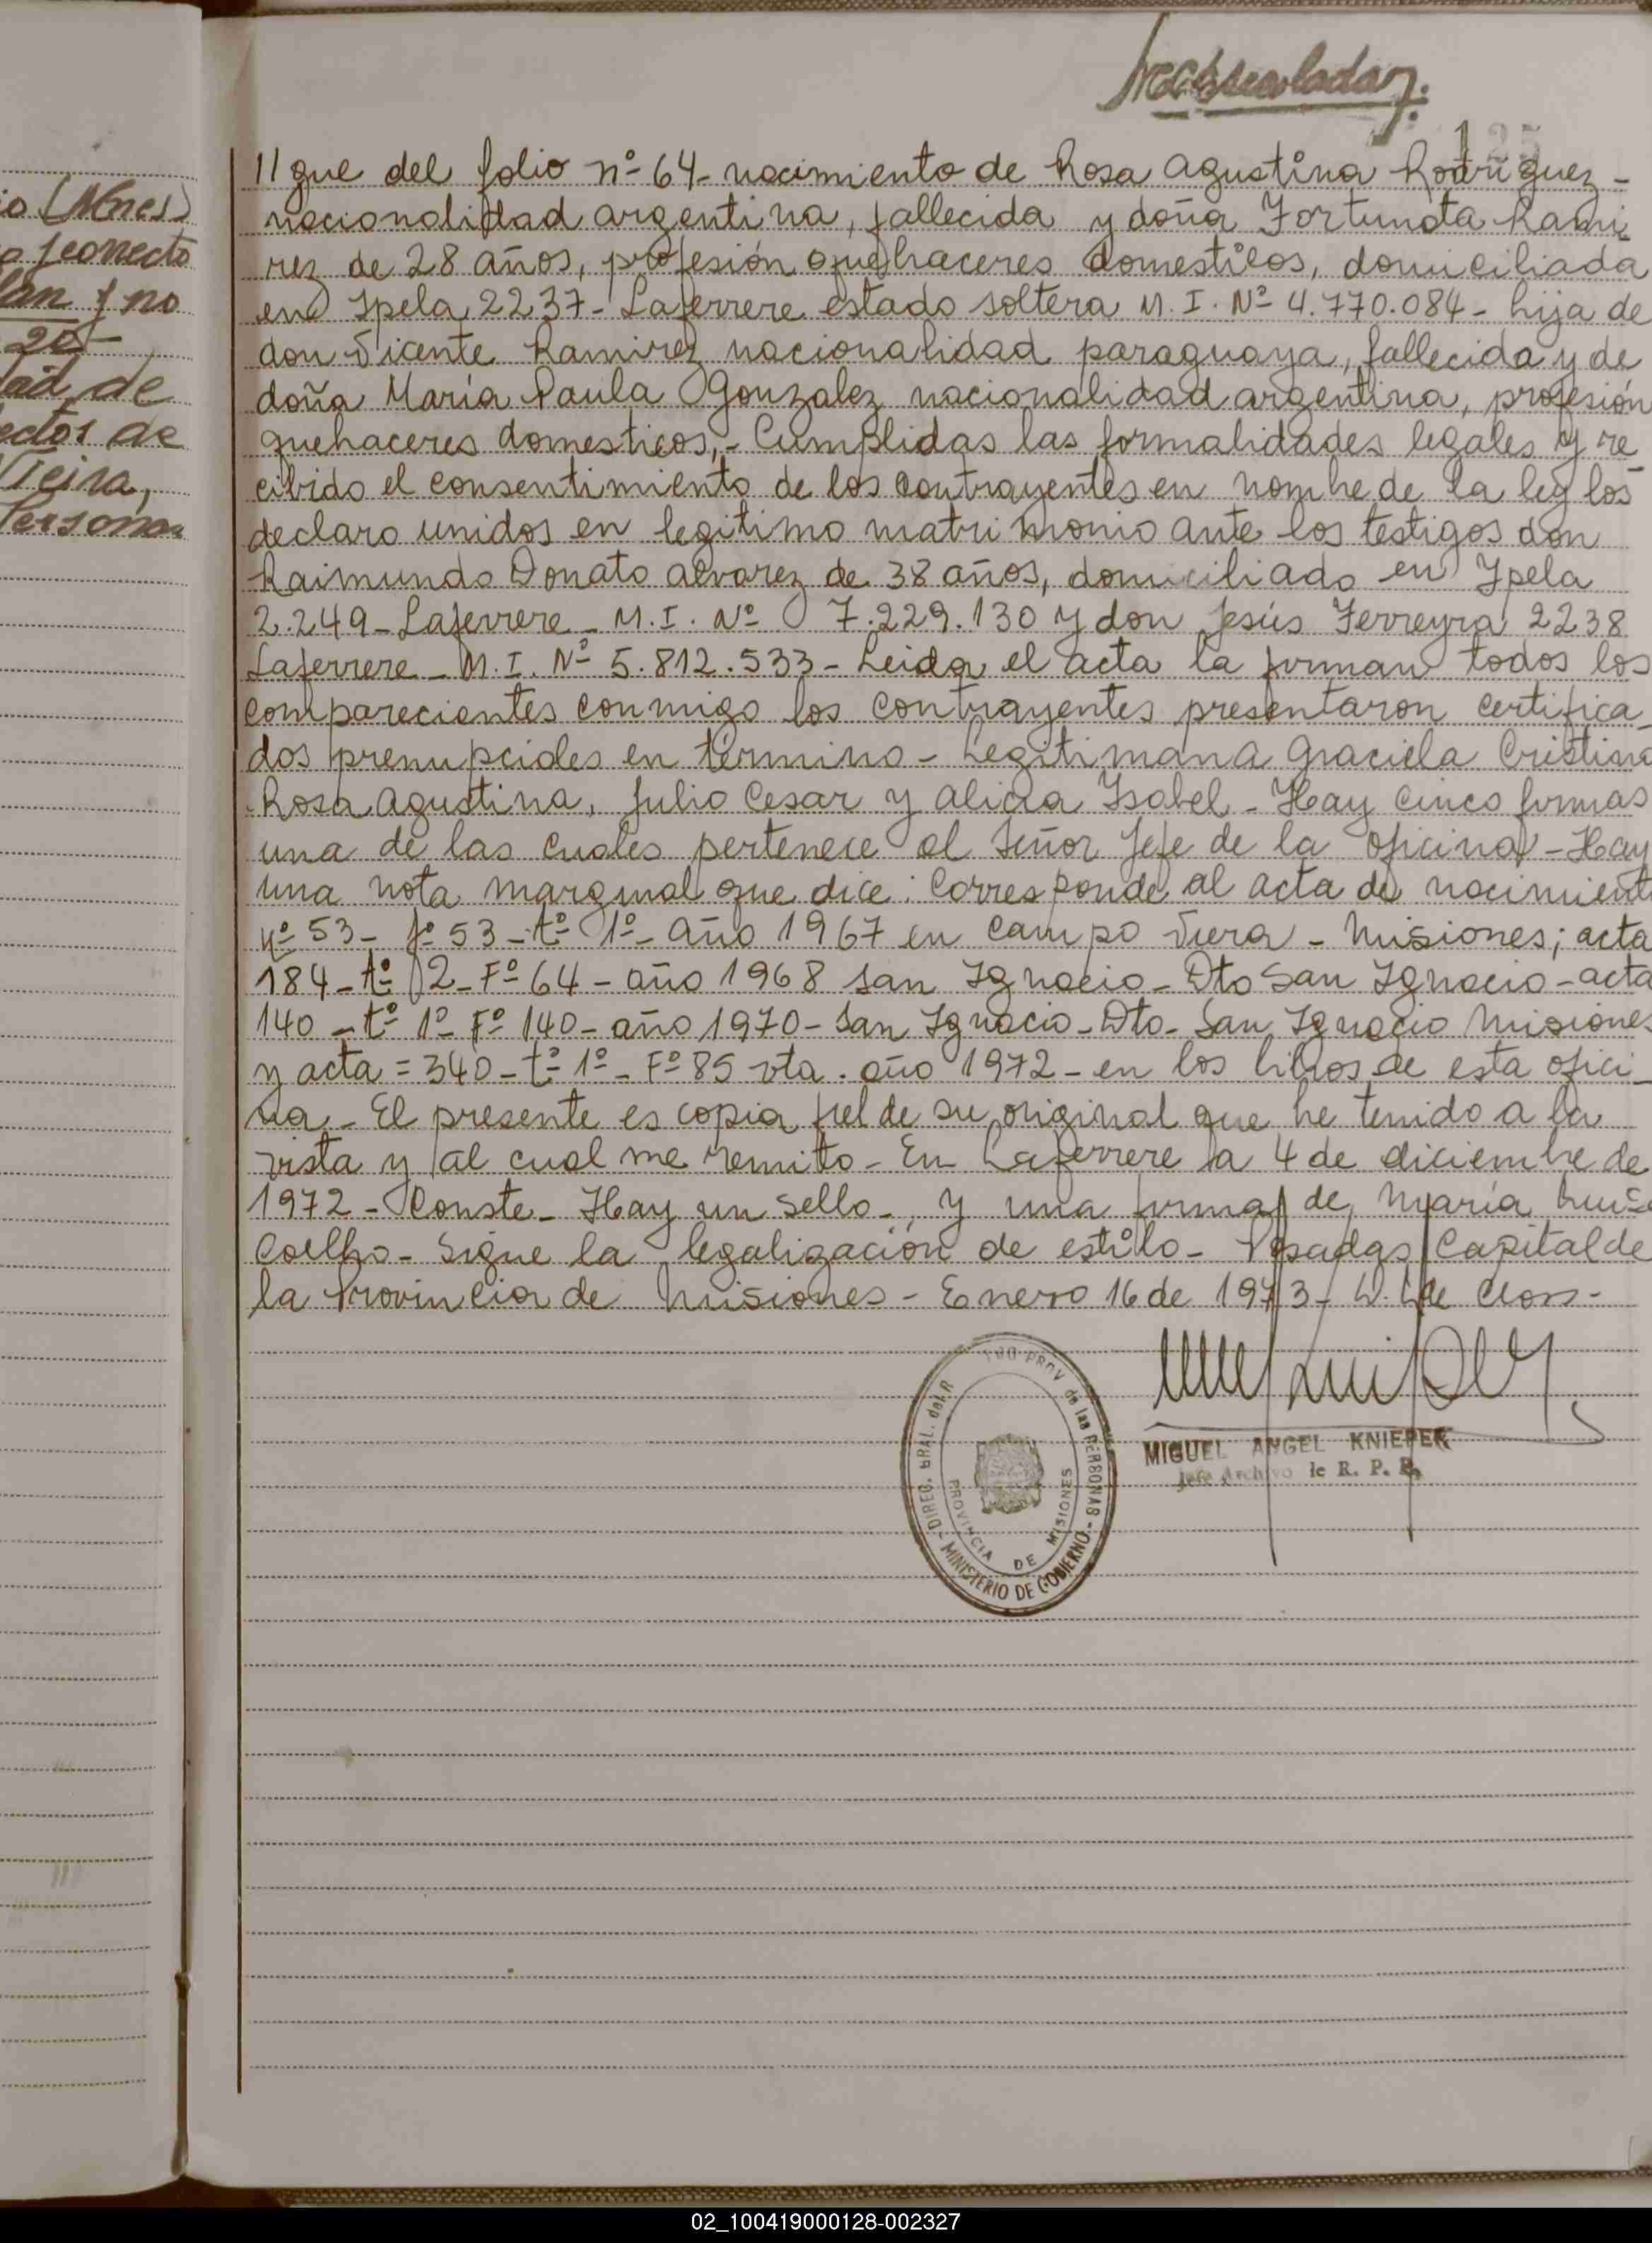 125
11 que del folio nº 64- nacimiento de Rosa Agustina Rodriguez-
nacionalidad argentina, fallecida y doña Fortunata Rami
rez de 28 años, profesión quehaceres domesticos, domiciliada
en Ipela 2237- Laferrere estado soltera M. I. Nº 4.770.084- hija de
don Vicente Ramirez nacionalidad paraguaya, fallecida y de
doña María Paula Gonzalez nacionalidad argentina, profesión
quehaceres domesticos,- Cumplidas las formalidades legales y re
cibido el consentimiento de los contrayentes en nombre de la ley los
declaro unidos en legitimo matrimonio ante los testigos don
Raimundo Donato Alvarez de 38 años, domiciliado en Ypela
2.249- Laferrere- M. I. Nº 7.229.130 y don Jesús Ferreyra 2238
Laferrere- M. I. Nº 5.812.533- Leida el acta la firman todos los
comparecientes conmigo los contrayentes presentaron certifica-
dos prenupciales en termino- Legitiman a Graciela Cristina
Rosa Agustina, Julio Cesar y Alicia Isabel- Hay cinco firmas
una de las cuales pertenece al Señor Jefe de la Oficina- Hay
una nota marginal que dice: Corresponde al acta de nacimient
nº 53- fº 53- tº 1º- año 1967 en Campo Viera- Misiones; acta
184- tº 2- Fº 64- año 1968 San Ignacio- Dto San Ignacio- acta
140- tº 1º Fº 140- año 1970- San Ignacio- Dto- San Ignacio Misiones
y acta = 340- tº 1º- Fº 85 vta. año 1972- en los libros de esta ofici-
na- El presente es copia fiel de su original que he tenido a la
vista y al cual me remito- En Laferrere a 4 de diciembre de
1972- Conste- Hay un sello- y una firma de María Luisa
Coelho- Sigue la legalización de estilo- Posadas Capital de
la Provincia de Misiones- Enero 16 de 1973-
MIGUEL ANGEL KNIEPER
Jefe Archivo de R. P. P.
DIREC. GRAL. del R TRO PROV de las PERSONAS - MINISTERIO DE GOBIERNO -
PROVINCIA DE MISIONES
io (Mnes)
o f correcto
lan f no
20-
ad de
ectos de
Vieira,
Personas
02_100419000128-002327